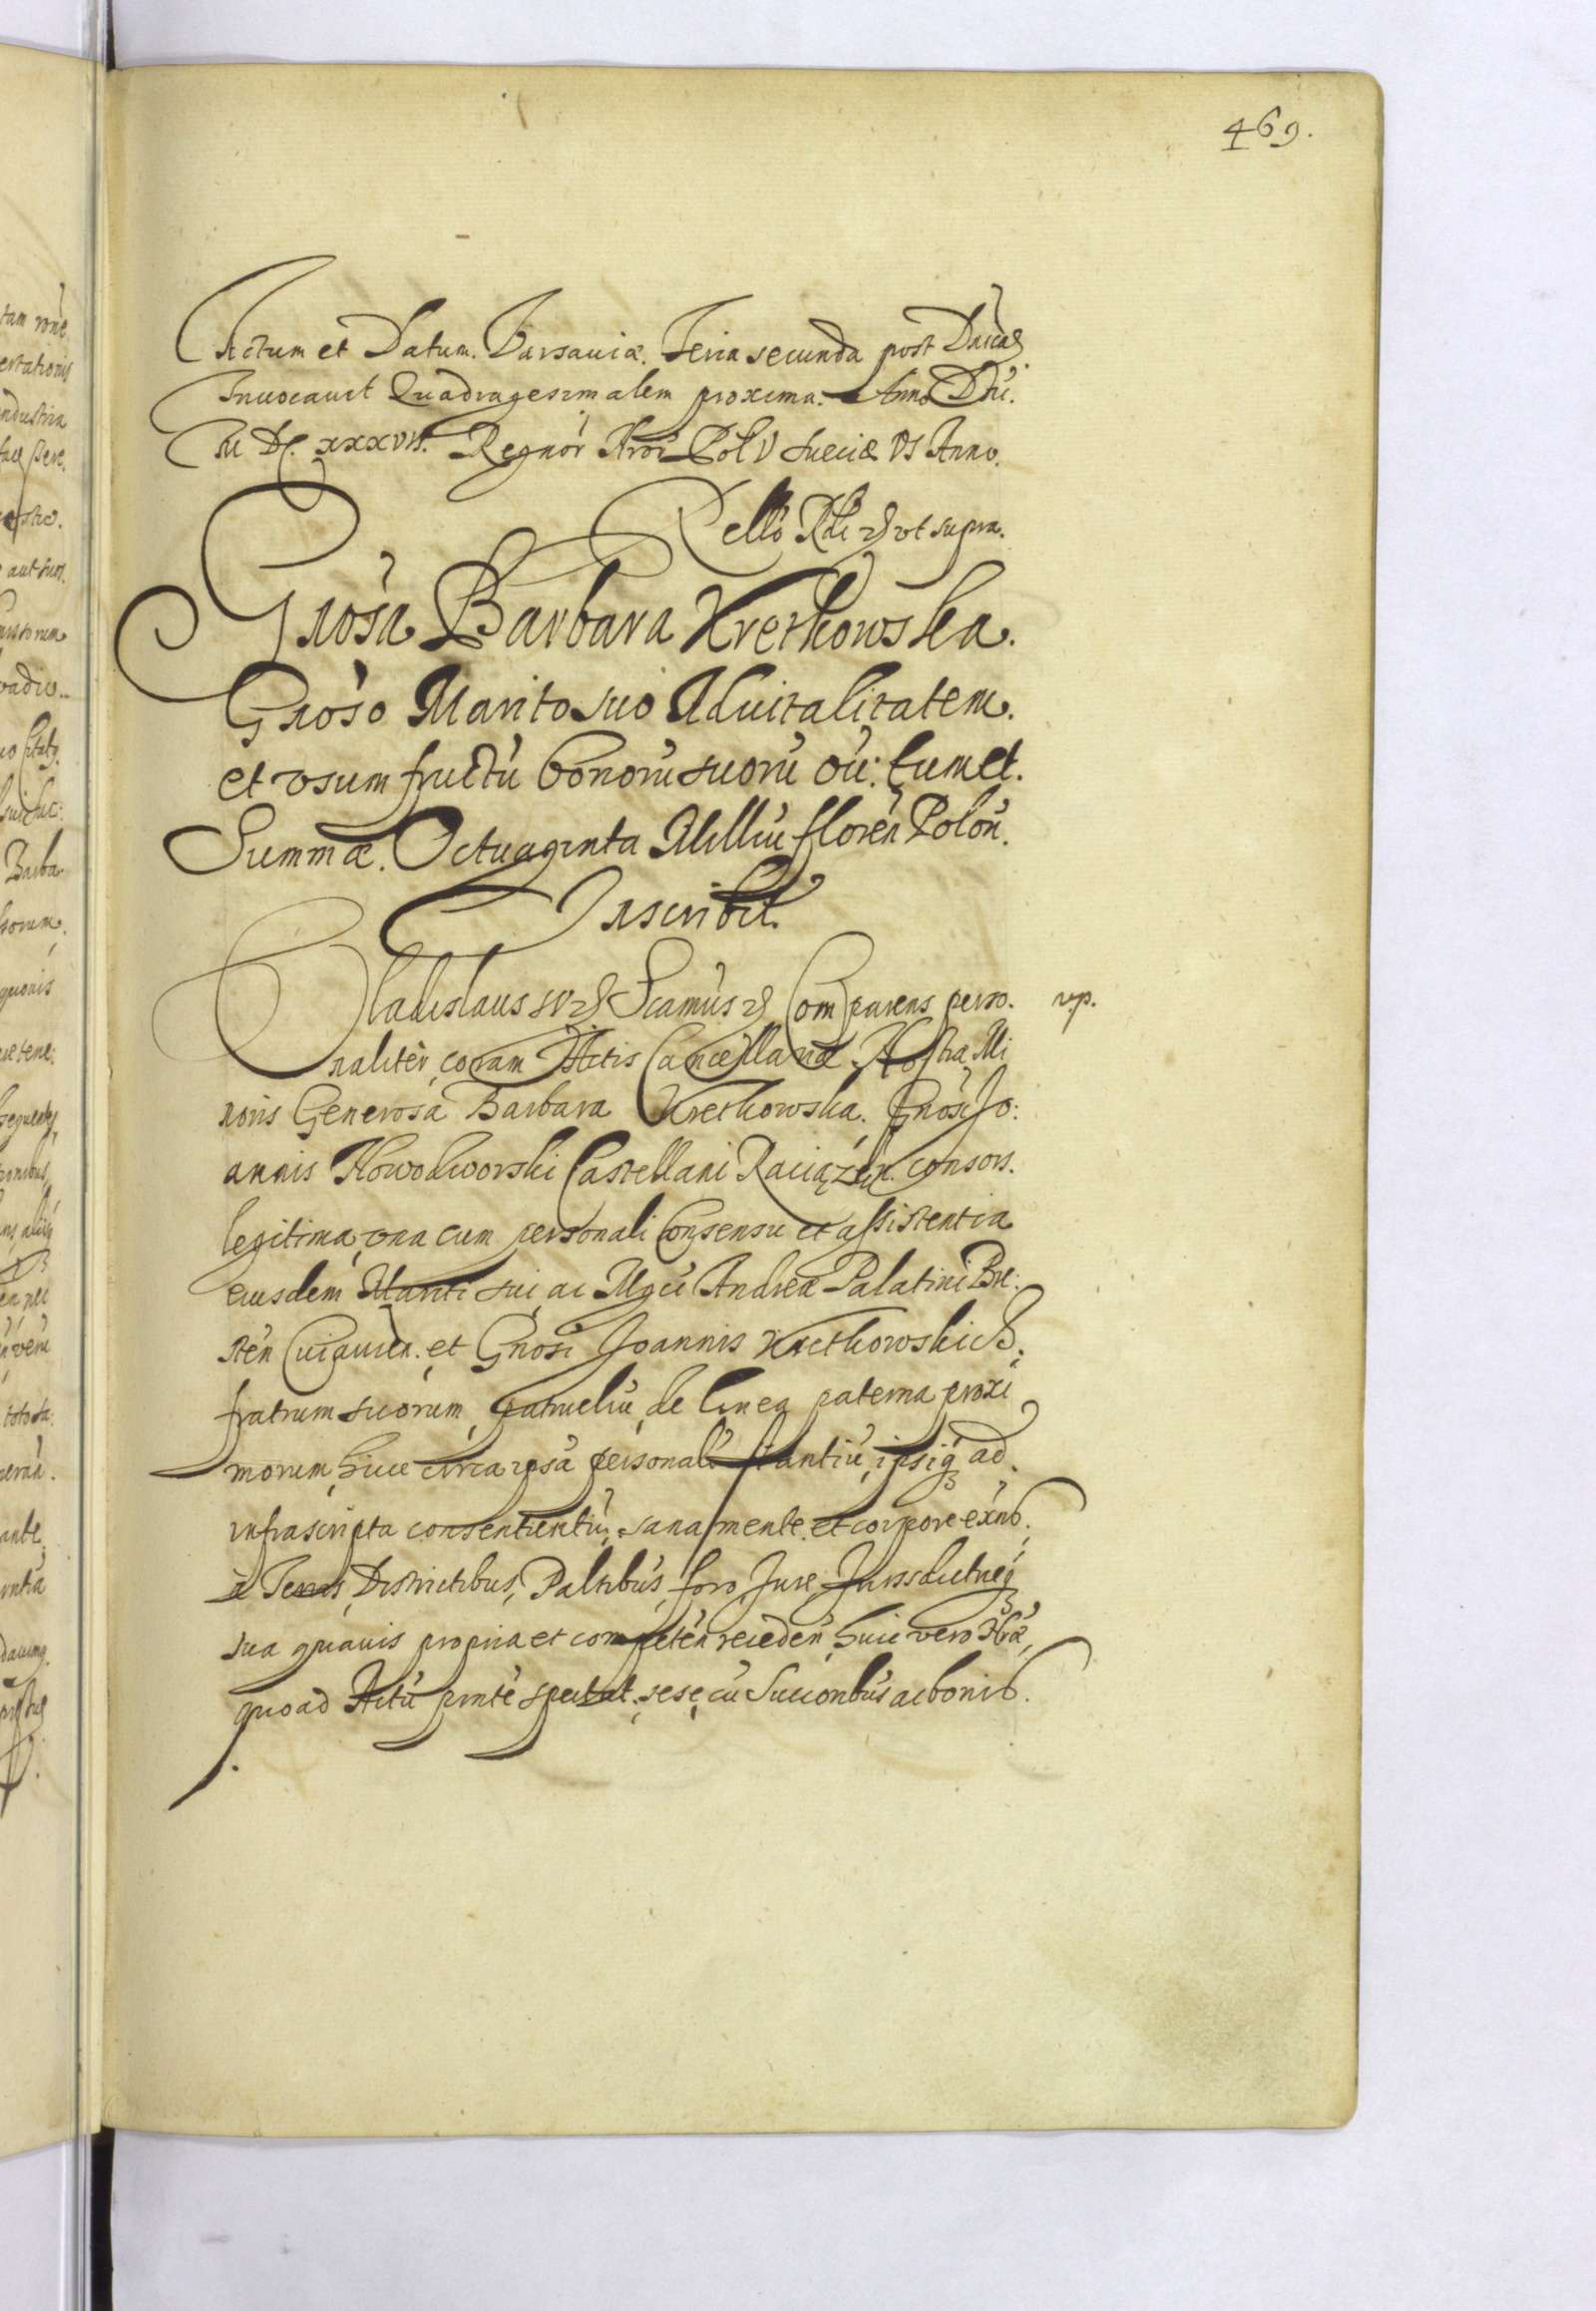 469.
Actum et Datum. Varsauiæ. Feria secunda post Dnicã
Inuocauit Quadragesimalem proxima. Anno Dni.
M DC. xxxvii. Regnor Nror Pol V Sueciæ VI Anno.
Rello Rdi ut supra.
Gnosa Barbara Kretkowska.
Gnoso Marito suo Aduitalitatem.
et vsum fructũ bonorũ suorũ oiũ: tum et.
Summæ. Octuaginta Milliũ florẽn Polon.
Inscribit.
Vladislaus IV Scamus Comparens perso.
rp.
naliter coram Actis Cancellariæ Nostræ Mi
noris Generosa Barbara Kretkowska. Gnosi Jo:
annis Nowodworski Castellani Raciążẽn. consors.
legitima, vna cum personali Consensu et assistentia
eiusdem Mariti sui, ac Mgci Andreæ Palatini Bre:
sten Cuiauien. et Gnosi Joannis Kretkowskich.
fratrum suorum, patrueliũ, de linea paterna proxi
morum, hicce circa ipsã personalr stantiũ, ipsiq ad
infrascripta consentientiũ, sana mente et corpore exnõ.
à Terris, Districtibus, Paltibus, foro, Jure, Jurisdictneq
sua quauis propria et competen receden, huic vero Nræ,
quoad Actũ pntẽ spectat. sese cũ Succoribus ac bonis.